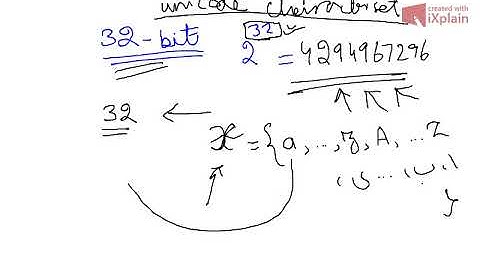 unicode characterset
created with
iXplain
32-bit 2^32 = 4294967296
32 ←
x = {a, ..., z, A, ... Z
ا, ب, ... ی,
}